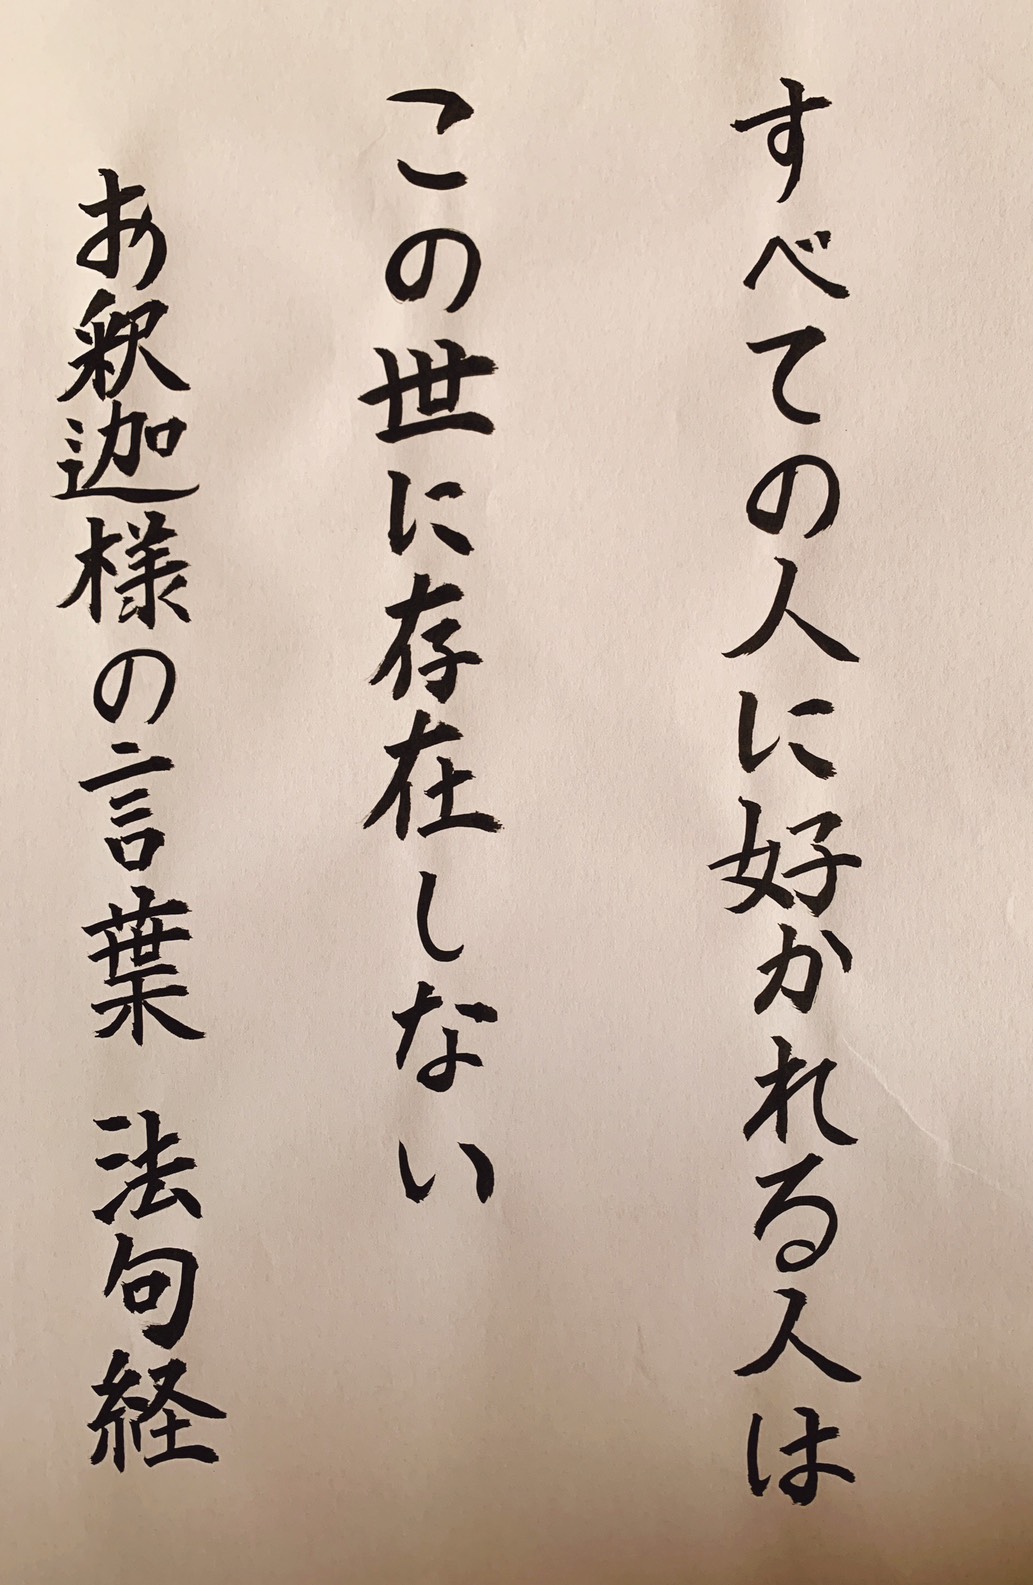 すべての人に好かれる人は
この世に存在しない
お釈迦様の言葉 法句経